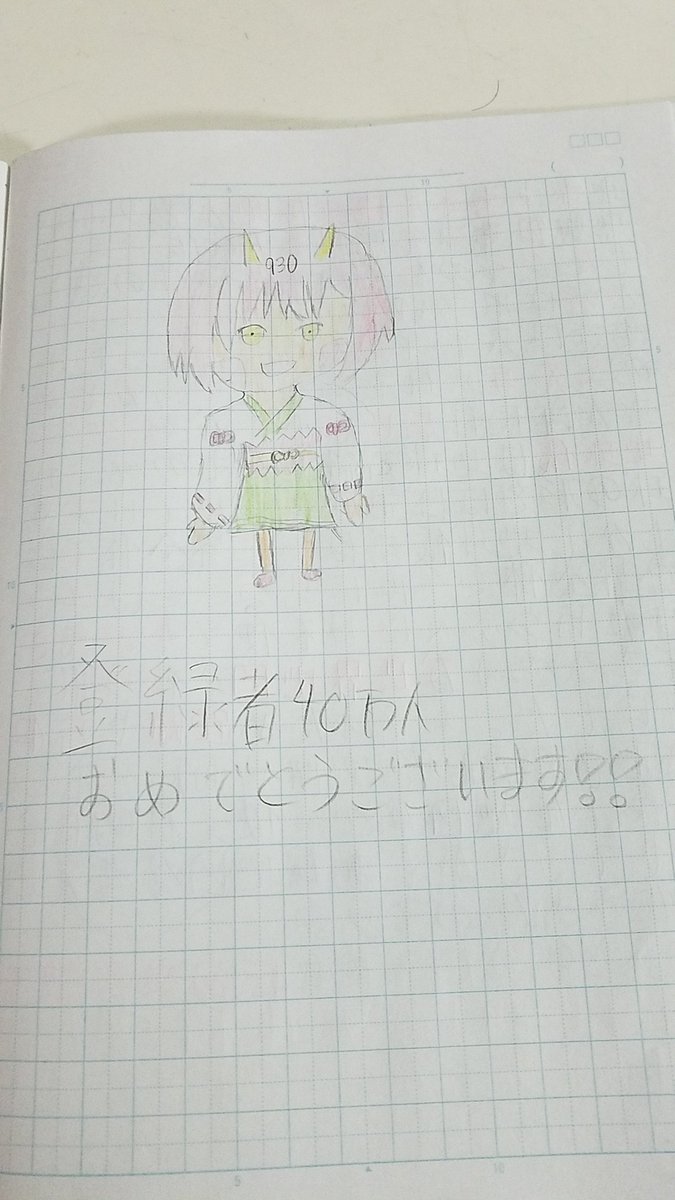 930
登録者40万人
おめでとうございます!!